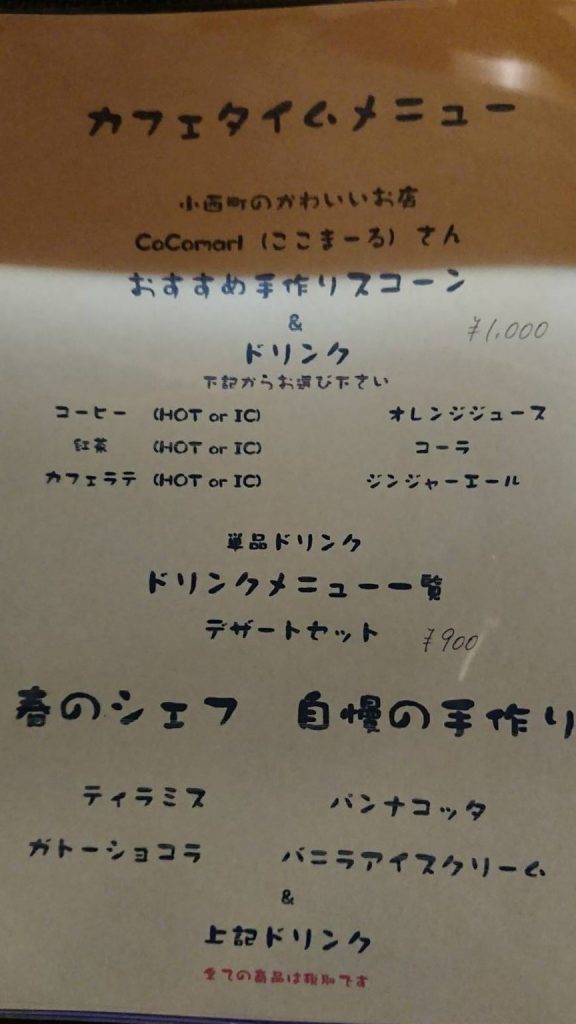 カフェタイムメニュー
小西町のかわいいお店
CoComarl (ここまーる) さん
おすすめ手作りスコーン
&
¥1,000
ドリンク
下記からお選び下さい
コーヒー (HOT or IC) オレンジジュース
紅茶 (HOT or IC) コーラ
カフェラテ (HOT or IC) ジンジャーエール
単品ドリンク
ドリンクメニュー一覧
デザートセット ¥900
春のシェフ 自慢の手作り
ティラミス パンナコッタ
ガトーショコラ バニラアイスクリーム
&
上記ドリンク
全ての商品は税別です